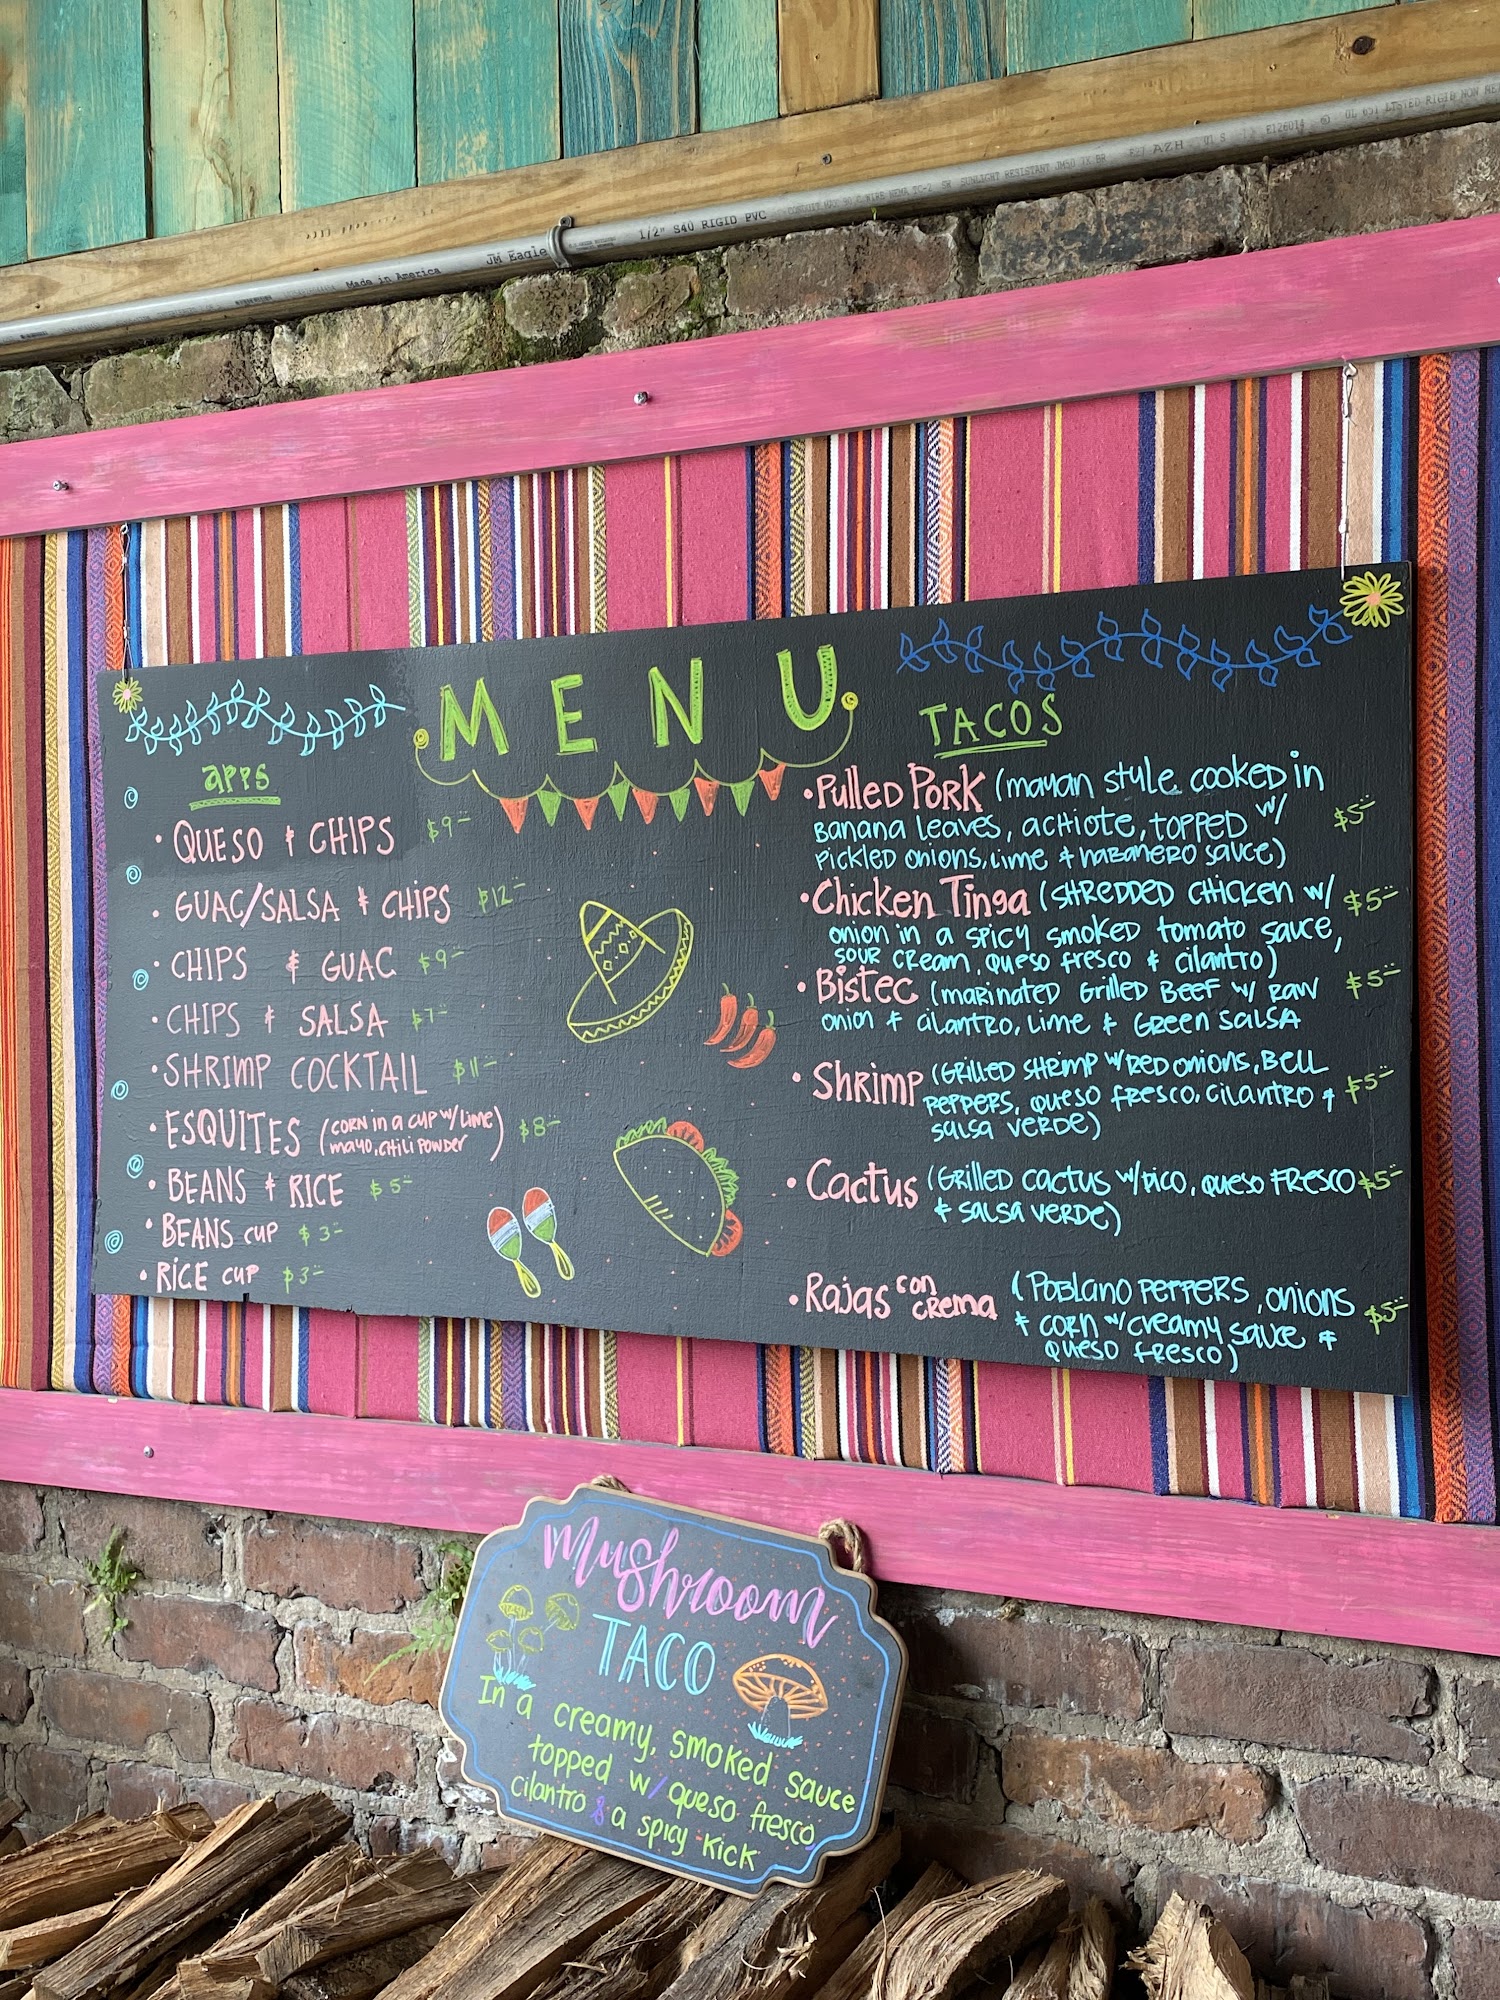 Made in America
JM Eagle
1/2" S40 RIGID PVC
MENU
apps
• QUESO & CHIPS $9-
• GUAC/SALSA & CHIPS $12-
• CHIPS & GUAC $9-
• CHIPS & SALSA $7-
• SHRIMP COCKTAIL $11-
• ESQUITES (CORN in a CUP W/ Lime
mayo, CHiLi POWDER) $8-
• BEANS & RICE $5-
• BEANS CUP $3-
• RiCE CUP $3-
TACOS
• Pulled PORK (mayan style cooked in
Banana Leaves, achiote, topped w/ $5-
Pickled onions, Lime & HaBaneRo sauce)
• Chicken Tinga (SHREDDED CHICKEN W/ $5-
onion in a spicy smoked tomato sauce,
SOUR CREAM, queso fresco & cilantro)
• Bistec (marinated Grilled Beef w/ Raw $5-
onion & cilantro, Lime & Green SalSA
• Shrimp (GRilled SHRimp w/ RED onions, BELL
PEPPERS, queso fresco, cilantro & $5-
salsa verde)
• Cactus (GRilled cactus w/ pico, queso fresco $5-
& salsa verde)
• Rajas con CREMA (POBLANO PEPPERS, onions
& CORN w/ creamy sauce & $5-
queso fresco)
Mushroom
TACO
In a creamy, smoked sauce
topped w/ queso fresco,
cilantro & a spicy kick